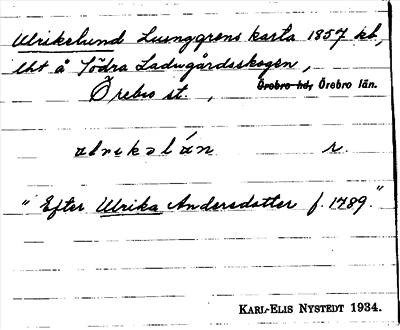 Ulrikelund Ljunggrens karta 1857 kb,
lht å Södra Ladugårdsskogen,
Örebro st., Örebro hd, Örebro län.
r.
"Efter Ulrika Andersdotter f. 1789."
KARL-ELIS NYSTEDT 1934.